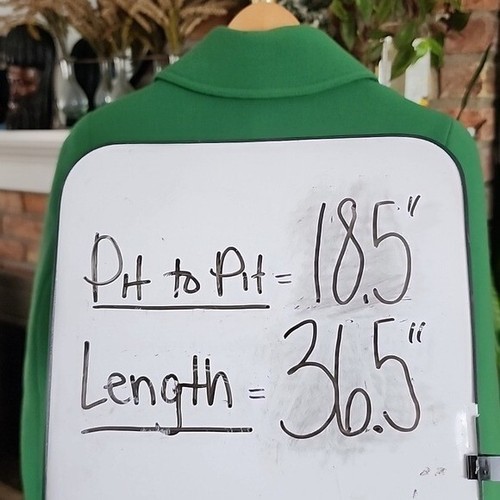 Pit to Pit = 18.5"
Length = 36.5"